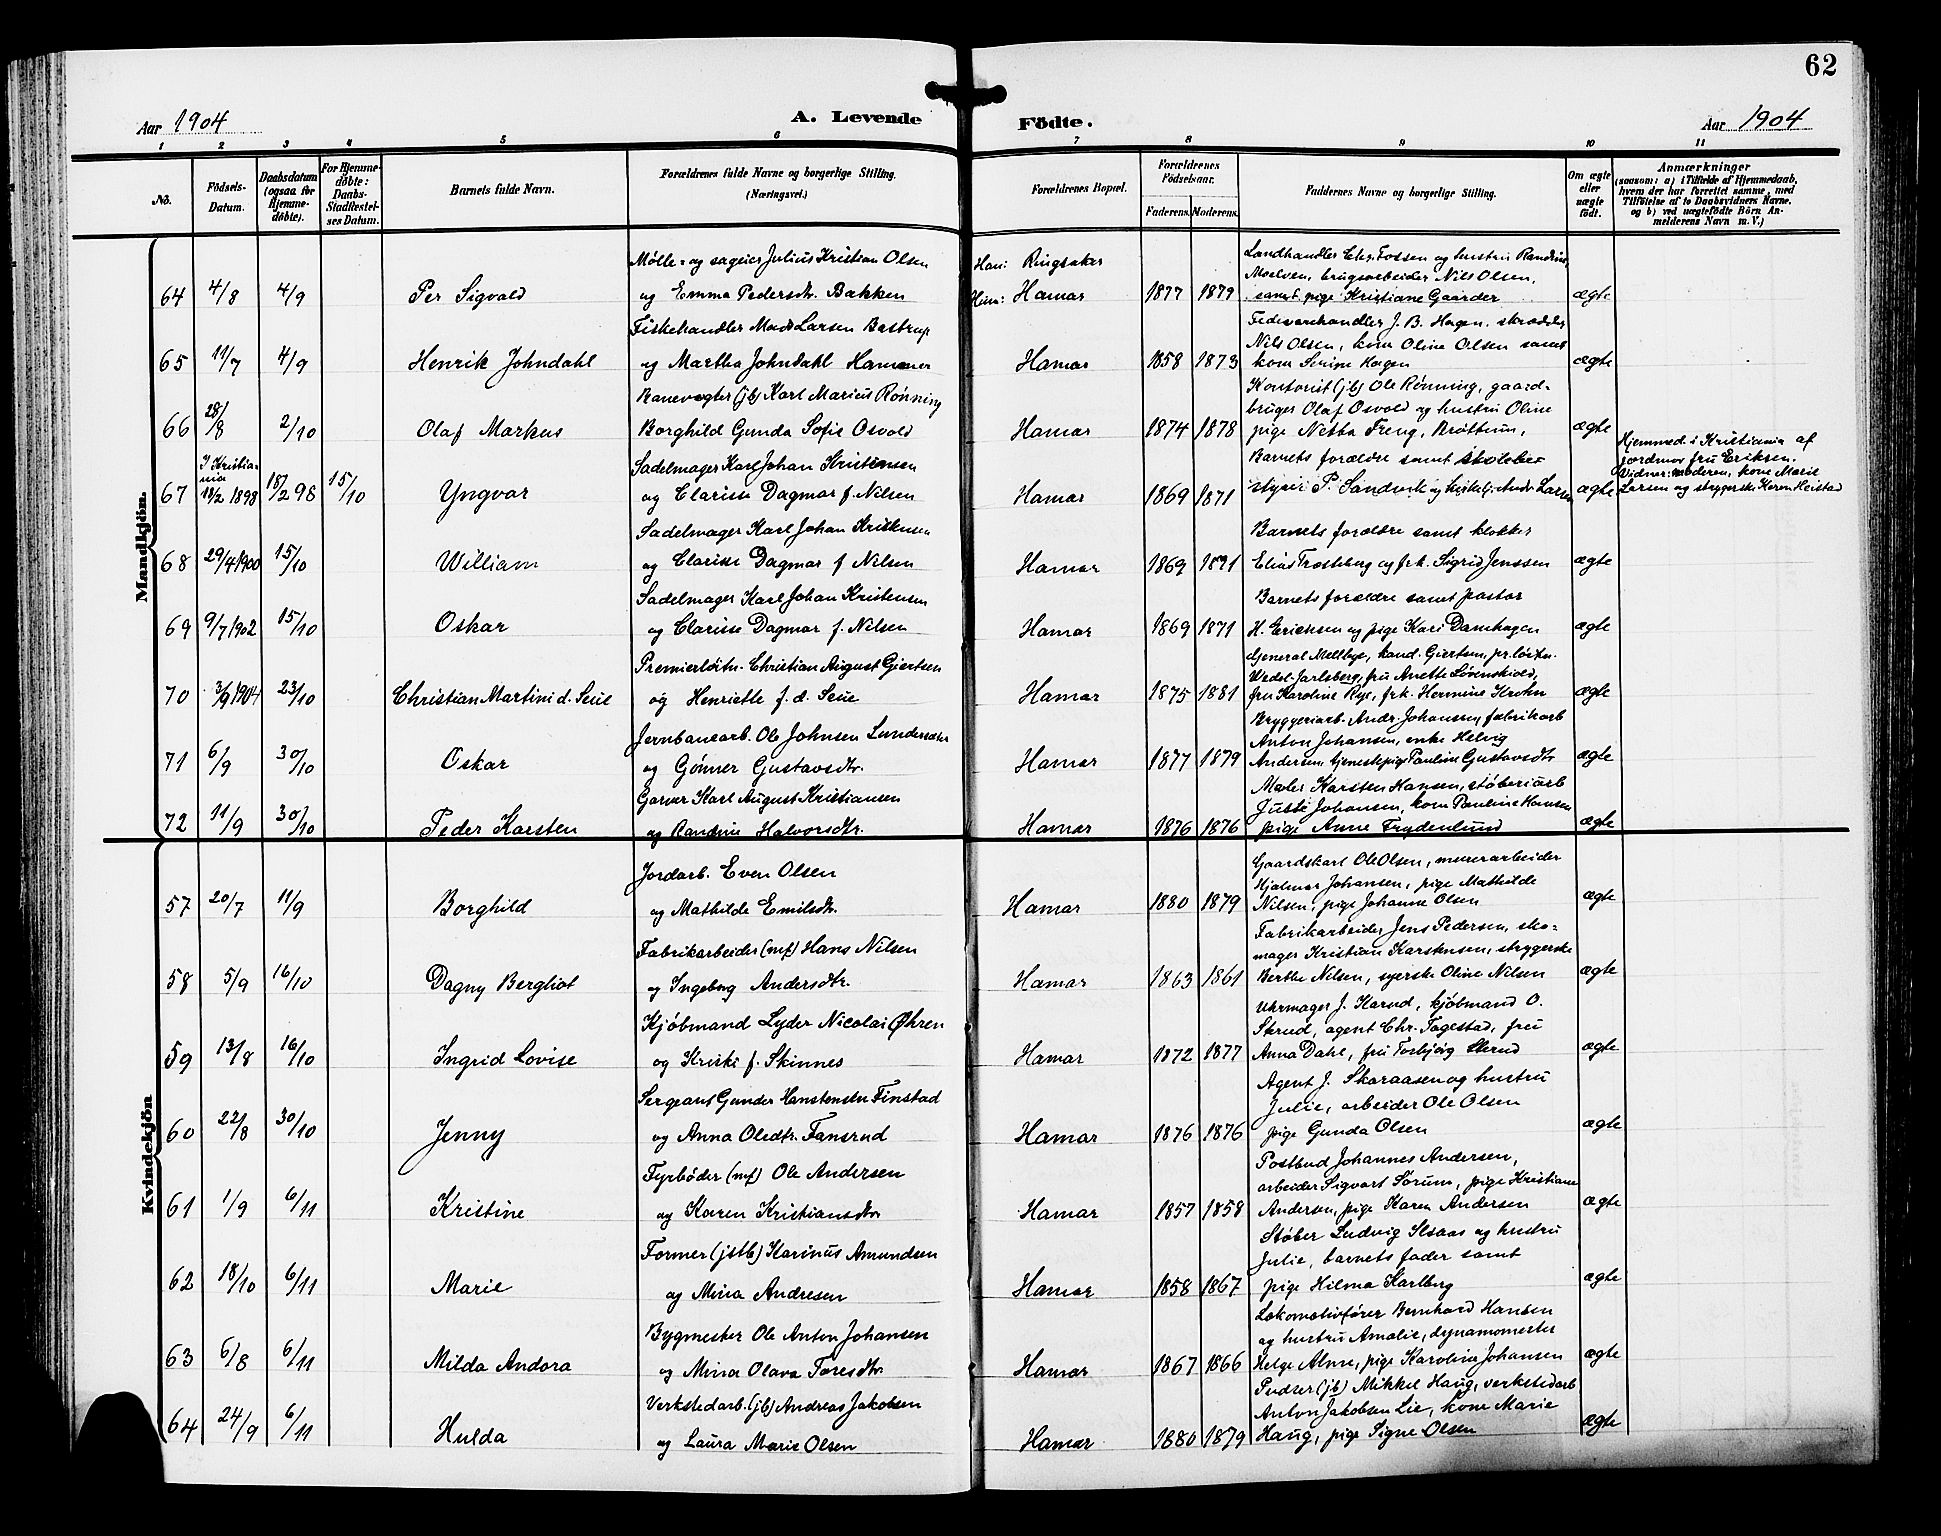 62
Aar 1904
A. Levende
Födte.
Aar 1904
1 2 3 4 5 6 7 8 9 10 11
No.
Födsels-Datum.
Daabsdatum (ogsaa for Hjemme-døbte).
For Hjemme-døbte: Daabs-Stadfæstel-ses Datum.
Barnets fulde Navn.
Forældrenes fulde Navne og borgerlige Stilling. (Næringsvei.)
Forældrenes Bopæl.
Forældrenes Födselsaar.
Faderens. Moderens.
Faddernes Navne og borgerlige Stilling.
Om ægte eller uægte født.
Anmærkninger
(saasom: a) i Tilfælde af Hjemmedaab, hvem der har forrettet samme, med Tilföielse af to Daabsvidners Navne, og b) ved uægtefödte Börn An-melderens Navn m. V.)
Mandkjön.
Mølle- og sageier Julius Kristian Olsen
Han: Ringsaker
Landhandler Chr. Fossen og hustru Randine
Moelven, brugsarbeider Nils Olsen,
64 4/8 4/9 Per Sigvald og Emma Pedersdtr. Bakken Hun: Hamar 1877 1879 samt pige Kristiane Gaarder ægte
Fiskehandler Mads Larsen Bastrup
Fedevarehandler J. B. Hagen, skrædder
Nils Olsen, kone Oline Olsen samt
65 11/7 4/9 Henrik Johndahl og Martha Johndahl Hamar 1858 1873 kone Hagen ægte
Banevogter (jb) Karl Marius Rønning
Kontorist (jb) Ole Rønning, gaard-
bruger Olaf Osvold og hustru Oline
66 28/8 2/10 Olaf Markus Borghild Gunda Sofie Osvold Hamar 1874 1878 pige Netta Freng, Brøttum, ægte
Sadelmager Karl Johan Kristensen
Barnets forældre samt
Hjemmed. i Kristiania af
jordmor fru Eriksen.
Vidner: moderen, kone Marie
67 I Kristiania 18/2 1898 18/2 98 15/10 Yngvar og Clarisse Dagmar f. Nilsen Hamar 1869 1871 styrer P. Sandvik og Andr. Larsen ægte Larsen og strygerske Karen Heistad
Sadelmager Karl Johan Kristensen
Barnets forældre samt klokker
68 29/4 1900 15/10 William og Clarisse Dagmar f Nilsen Hamar 1869 1871 Elias Trosteberg og frk. Sigrid Jenssen ægte
Sadelmager Karl Johan Kristensen
Barnets forældre samt pastor
69 9/7 1902 15/10 Oskar og Clarisse Dagmar f. Nilsen Hamar 1869 1871 H. Erichsen og pige Kari Damhagen ægte
Premierløitn. Christian August Gjertsen
General Mellbye, kand. Gjertsen, pr.løitn.
Wedel Jarlsberg, fru Anette Løvenskiold,
70 3/9 1904 23/10 Christian Martini d. Seue og Henriette f. d. Seue Hamar 1875 1881 fru Karoline Rye, frk. Hermine Krohn ægte
Jernbanearb. Ole Johnsen Lundersæter
Bryggeriarb. Andr. Johansen, fabrikarb
Anton Johansen, enke Helvig
71 6/9 30/10 Oskar og Gønner Gustavsdtr. Hamar 1877 1879 Andersen, tjenestepige Pauline Gustavsdtr ægte
Garver Karl August Kristiansen
Maler Karsten Hansen, støberiarb
Juste Johansen, kone Pauline Hansen
72 11/9 30/10 Peder Karsten og Randine Halvorsdtr. Hamar 1876 1876 pige Anne Frydenlund ægte
Kvindekjön
Jordarb. Even Olsen
Gaardskarl Ole Olsen, murerarbeider
Hjalmar Johansen, pige Mathilde
57 20/7 11/9 Borghild og Mathilde Emilsdtr. Hamar 1880 1879 Nilsen, pige Johanne Olsen ægte
Fabrikarbeider (mf) Hans Nilsen
Fabrikarbeider Jens Pedersen, sko-
mager Kristian Karstensen, strygerske
58 5/9 16/10 Dagny Bergliot og Ingeborg Andersdtr. Hamar 1863 1861 Berthe Nilsen, syerske Oline Nilsen ægte
Kjøbmand Lyder Nicolai Øhren
Uhrmager J. Harud, kjøbmand O.
Skrud, agent Chr. Fagestad, fru
59 13/8 16/10 Ingrid Lovise og Kristi f. Skinnes Hamar 1872 1877 Anna Dahl, fru Torbjørg Skrud ægte
Sergeant Gunder Hanstensen Finstad
Agent J. Skaraasen og hustru
Julie, arbeider Ole Olsen
60 22/8 30/10 Jenny og Anna Olsdtr. Fansrud Hamar 1876 1876 pige Gunda Olsen ægte
Fyrbøder (mf) Ole Andersen
Postbud Johannes Andersen,
arbeider Sigvart Sorum, pige Kristiane
61 1/9 6/11 Kristine og Karen Kristiansdtr Hamar 1857 1858 Andersen, pige Karen Andersen ægte
Former (jstb) Karinus Amundsen
Støber Ludvig Ilsaas og hustru
Julie, barnets fader samt
62 18/10 6/11 Marie og Mina Andresen Hamar 1858 1867 pige Hilma Karlberg ægte
Bygmester Ole Anton Johansen
Lokomotivfører Bernhard Hansen
og hustru Amalie, dynamomester
63 6/8 6/11 Milda Andora og Mina Olava Toresdtr. Hamar 1867 1866 Helge Alme, pige Karoline Johansen ægte
Verkstedarb. (jb) Andreas Jakobsen
Pudser (jb) Mikkel Haug, verkstedarb
Anton Jakobsen Lie, kone Marie
64 24/9 6/11 Hulda og Laura Marie Olsen Hamar 1880 1879 Haug, pige Signe Olsen ægte